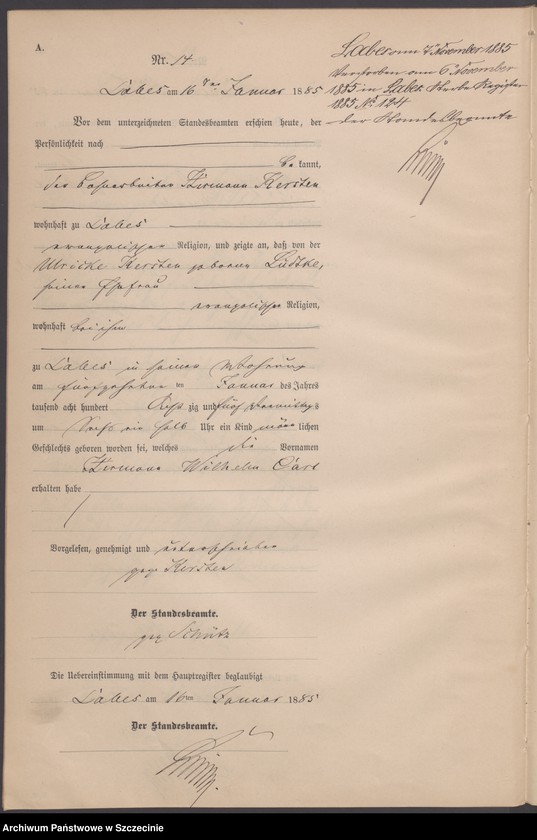 A.
Nr. 14
Labes am 16 ten Januar 1885
Vor dem unterzeichneten Standesbeamten erschien heute, der
Persönlichkeit nach
be kannt,
der Hermann Kersten
wohnhaft zu Labes
evangelischer Religion, und zeigte an, daß von der
Ulricke Kersten geborene Lüdtke,
seiner Ehefrau
evangelischer Religion,
wohnhaft bei ihm
zu Labes in seiner Wohnung
am fünfzehnten ten Januar des Jahres
tausend acht hundert acht zig und fünf Vormittags
um Sechs ein halb Uhr ein Kind männ lichen
Geschlechts geboren worden sei, welches die Vornamen
Hermann Wilhelm Carl
erhalten habe
Vorgelesen, genehmigt und unterschrieben
gez. Kersten
Der Standesbeamte.
gez. Schütz
Die Uebereinstimmung mit dem Hauptregister beglaubigt
Labes am 16 ten Januar 1885
Der Standesbeamte.
Labes am 7 November 1885
Verstorben am 6 November
1885 in Labes Sterbe Register
1885 No 124
der Standesbeamte
Archiwum Państwowe w Szczecinie